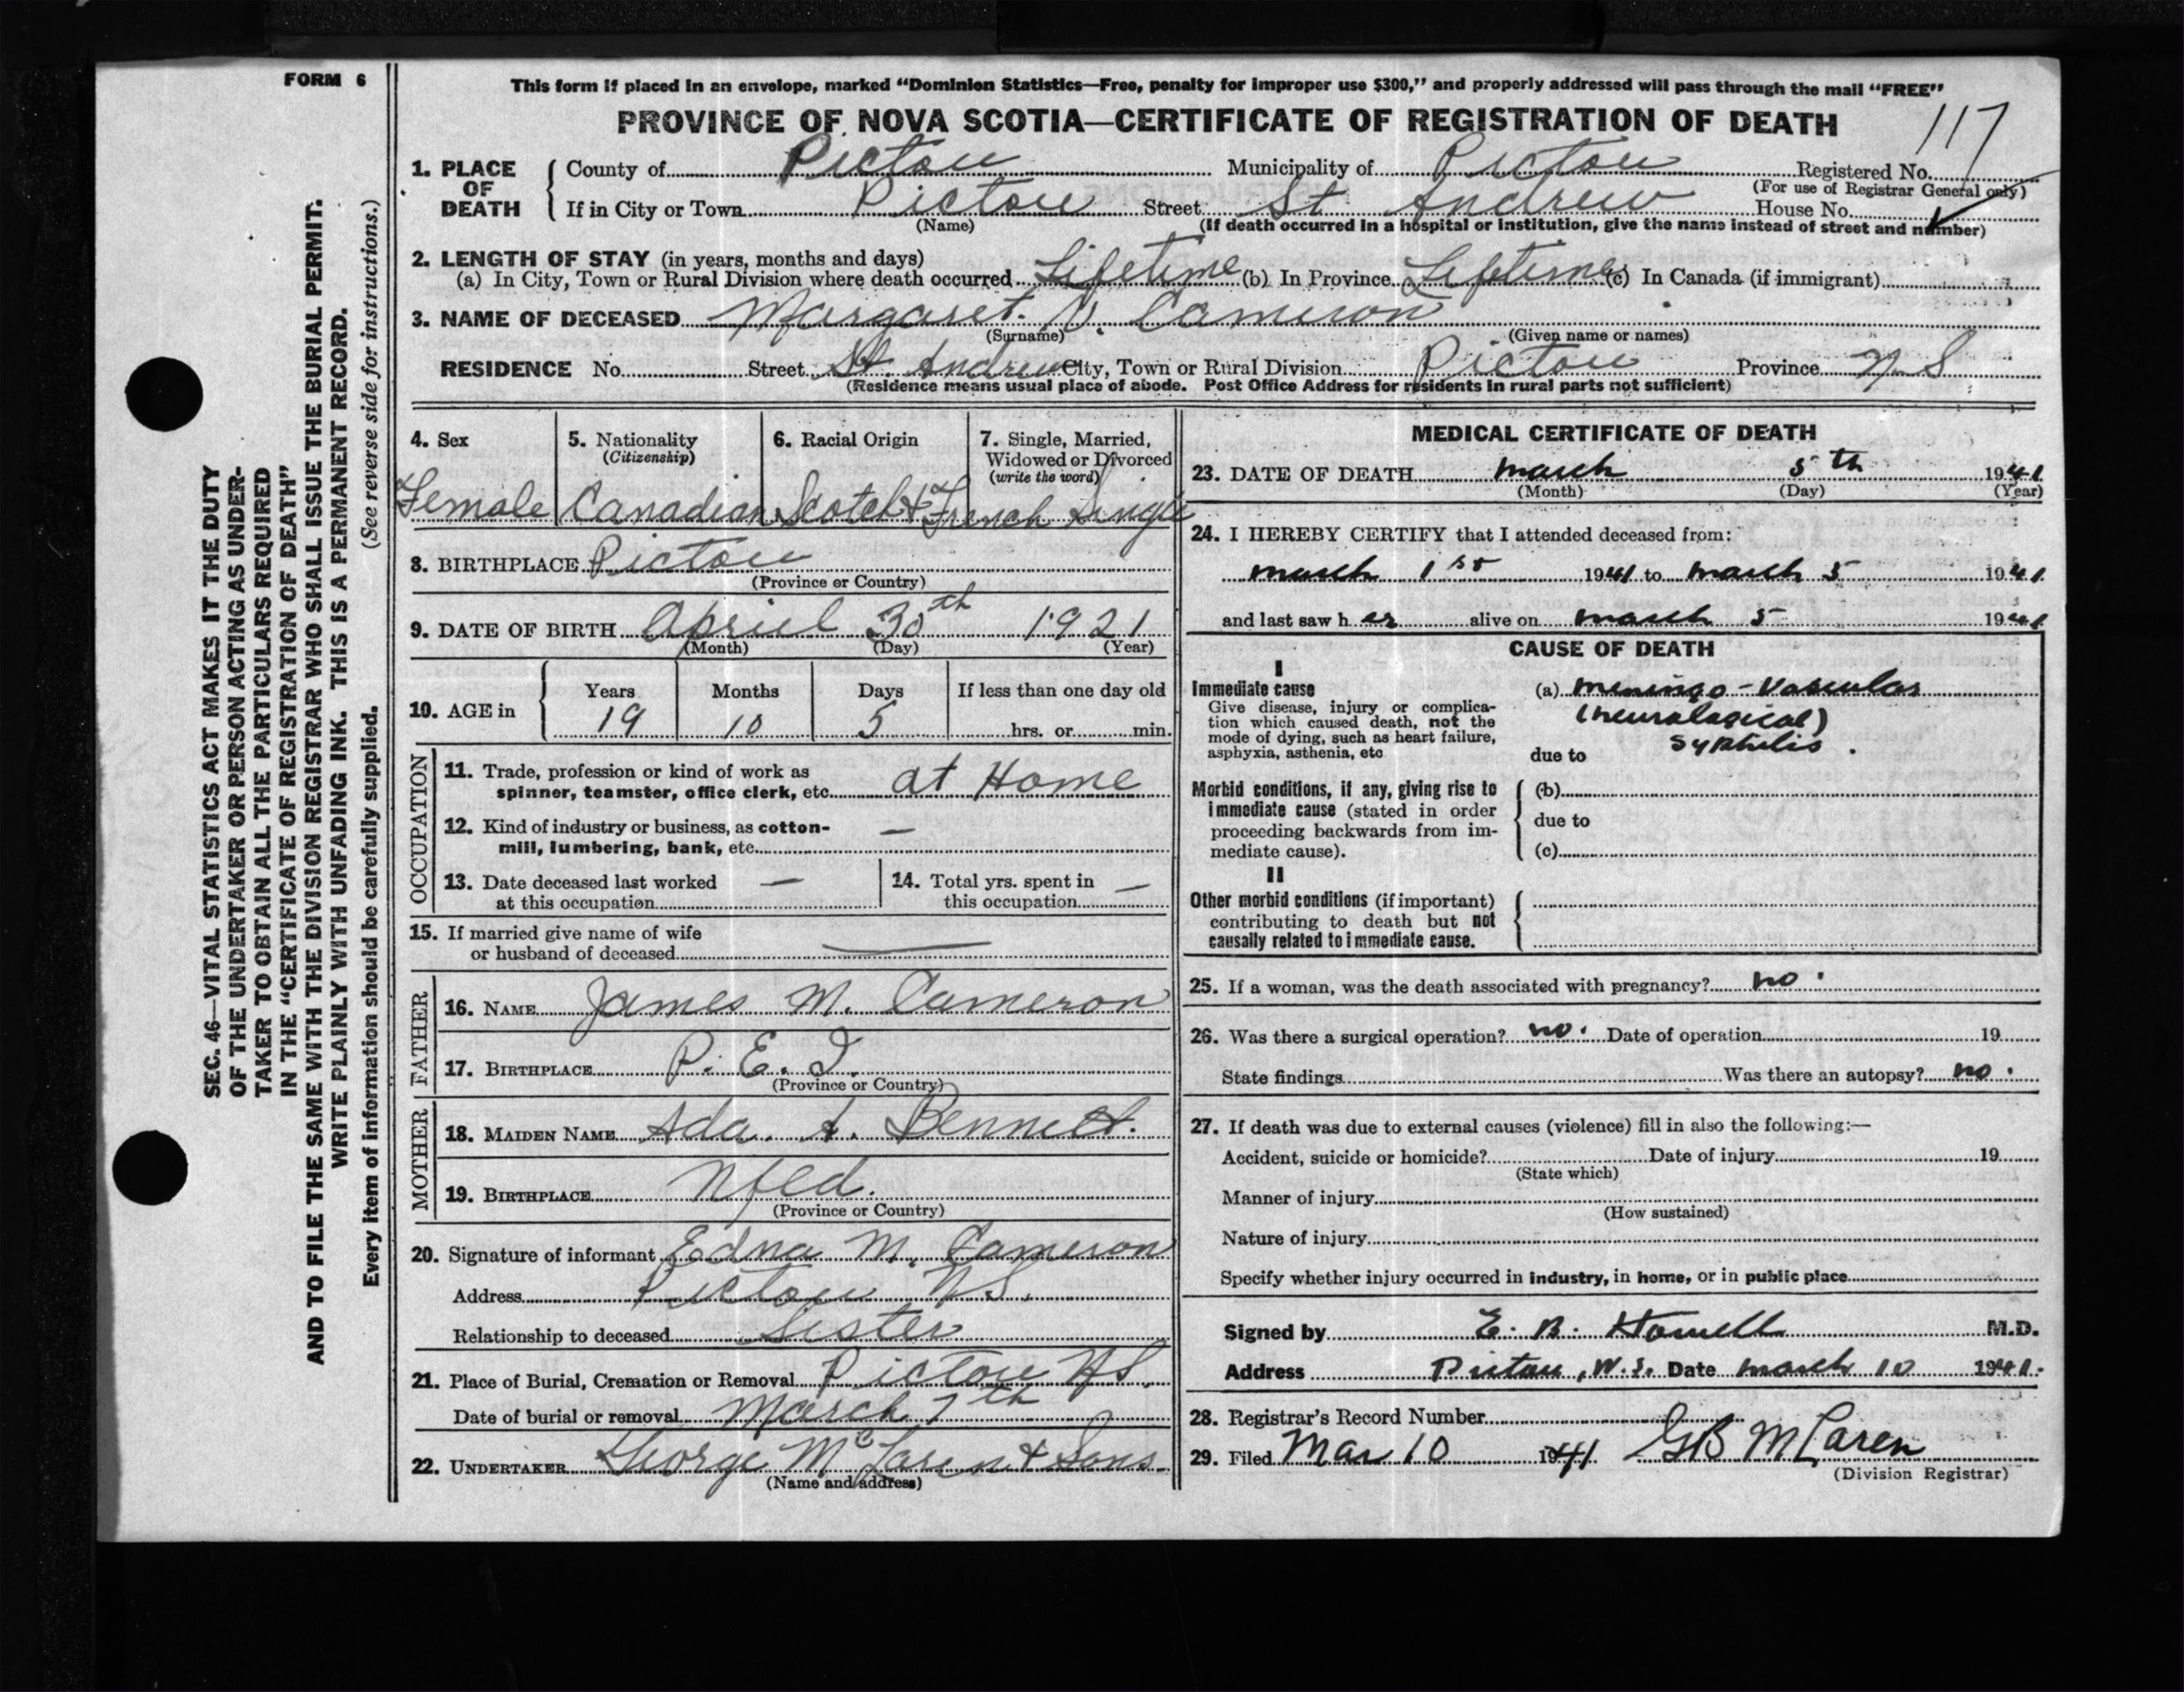 FORM 6
This form if placed in an envelope, marked "Dominion Statistics—Free, penalty for improper use $300," and properly addressed will pass through the mail "FREE"
PROVINCE OF NOVA SCOTIA—CERTIFICATE OF REGISTRATION OF DEATH
117
1. PLACE OF DEATH County of Pictou Municipality of Pictou Registered No.
(For use of Registrar General only)
If in City or Town Pictou Street St Andrew House No.
(Name) (If death occurred in a hospital or institution, give the name instead of street and number)
2. LENGTH OF STAY (in years, months and days)
(a) In City, Town or Rural Division where death occurred Lifetime (b) In Province Lifetime (c) In Canada (if immigrant)
3. NAME OF DECEASED Margaret. V. Cameron
(Surname) (Given name or names)
RESIDENCE No. Street St. Andrew City, Town or Rural Division Pictou Province N S
(Residence means usual place of abode. Post Office Address for residents in rural parts not sufficient)
4. Sex 5. Nationality (Citizenship) 6. Racial Origin 7. Single, Married, Widowed or Divorced (write the word)
Female Canadian Scotch & French Single
8. BIRTHPLACE Pictou
(Province or Country)
9. DATE OF BIRTH Apriel 30th 1921
(Month) (Day) (Year)
10. AGE in Years Months Days If less than one day old
19 10 5 hrs. or min.
OCCUPATION
11. Trade, profession or kind of work as
spinner, teamster, office clerk, etc. at Home
12. Kind of industry or business, as cotton-
mill, lumbering, bank, etc. —
13. Date deceased last worked
at this occupation — 14. Total yrs. spent in
this occupation —
15. If married give name of wife
or husband of deceased —
FATHER
16. NAME James M. Cameron
17. BIRTHPLACE P. E. I.
(Province or Country)
MOTHER
18. MAIDEN NAME Ada. A. Bennett.
19. BIRTHPLACE Nfld.
(Province or Country)
20. Signature of informant Edna M. Cameron
Address Pictou NS.
Relationship to deceased Sister
21. Place of Burial, Cremation or Removal Pictou NS.
Date of burial or removal March 7th
22. UNDERTAKER George McLaren & Sons.
(Name and address)
MEDICAL CERTIFICATE OF DEATH
23. DATE OF DEATH march 5th 1941
(Month) (Day) (Year)
24. I HEREBY CERTIFY that I attended deceased from:
march 1st 1941 to march 5 1941
and last saw her alive on march 5 1941
CAUSE OF DEATH
I
Immediate cause
Give disease, injury or complica-
tion which caused death, not the
mode of dying, such as heart failure,
asphyxia, asthenia, etc
(a) meningo-vascular
(neurological)
due to syphilis.
Morbid conditions, if any, giving rise to
immediate cause (stated in order
proceeding backwards from im-
mediate cause).
(b)
due to
(c)
II
Other morbid conditions (if important)
contributing to death but not
causally related to immediate cause.
25. If a woman, was the death associated with pregnancy? no.
26. Was there a surgical operation? no. Date of operation 19
State findings Was there an autopsy? no.
27. If death was due to external causes (violence) fill in also the following:—
Accident, suicide or homicide? Date of injury 19
(State which)
Manner of injury
(How sustained)
Nature of injury
Specify whether injury occurred in industry, in home, or in public place
Signed by E. B. Howell M.D.
Address Pictou, N.S. Date march 10 1941.
28. Registrar's Record Number
29. Filed Mar 10 1941. GB McLaren
(Division Registrar)
SEC. 46—VITAL STATISTICS ACT MAKES IT THE DUTY
OF THE UNDERTAKER OR PERSON ACTING AS UNDER-
TAKER TO OBTAIN ALL THE PARTICULARS REQUIRED
IN THE "CERTIFICATE OF REGISTRATION OF DEATH"
AND TO FILE THE SAME WITH THE DIVISION REGISTRAR WHO SHALL ISSUE THE BURIAL PERMIT.
WRITE PLAINLY WITH UNFADING INK. THIS IS A PERMANENT RECORD.
Every item of information should be carefully supplied. (See reverse side for instructions.)